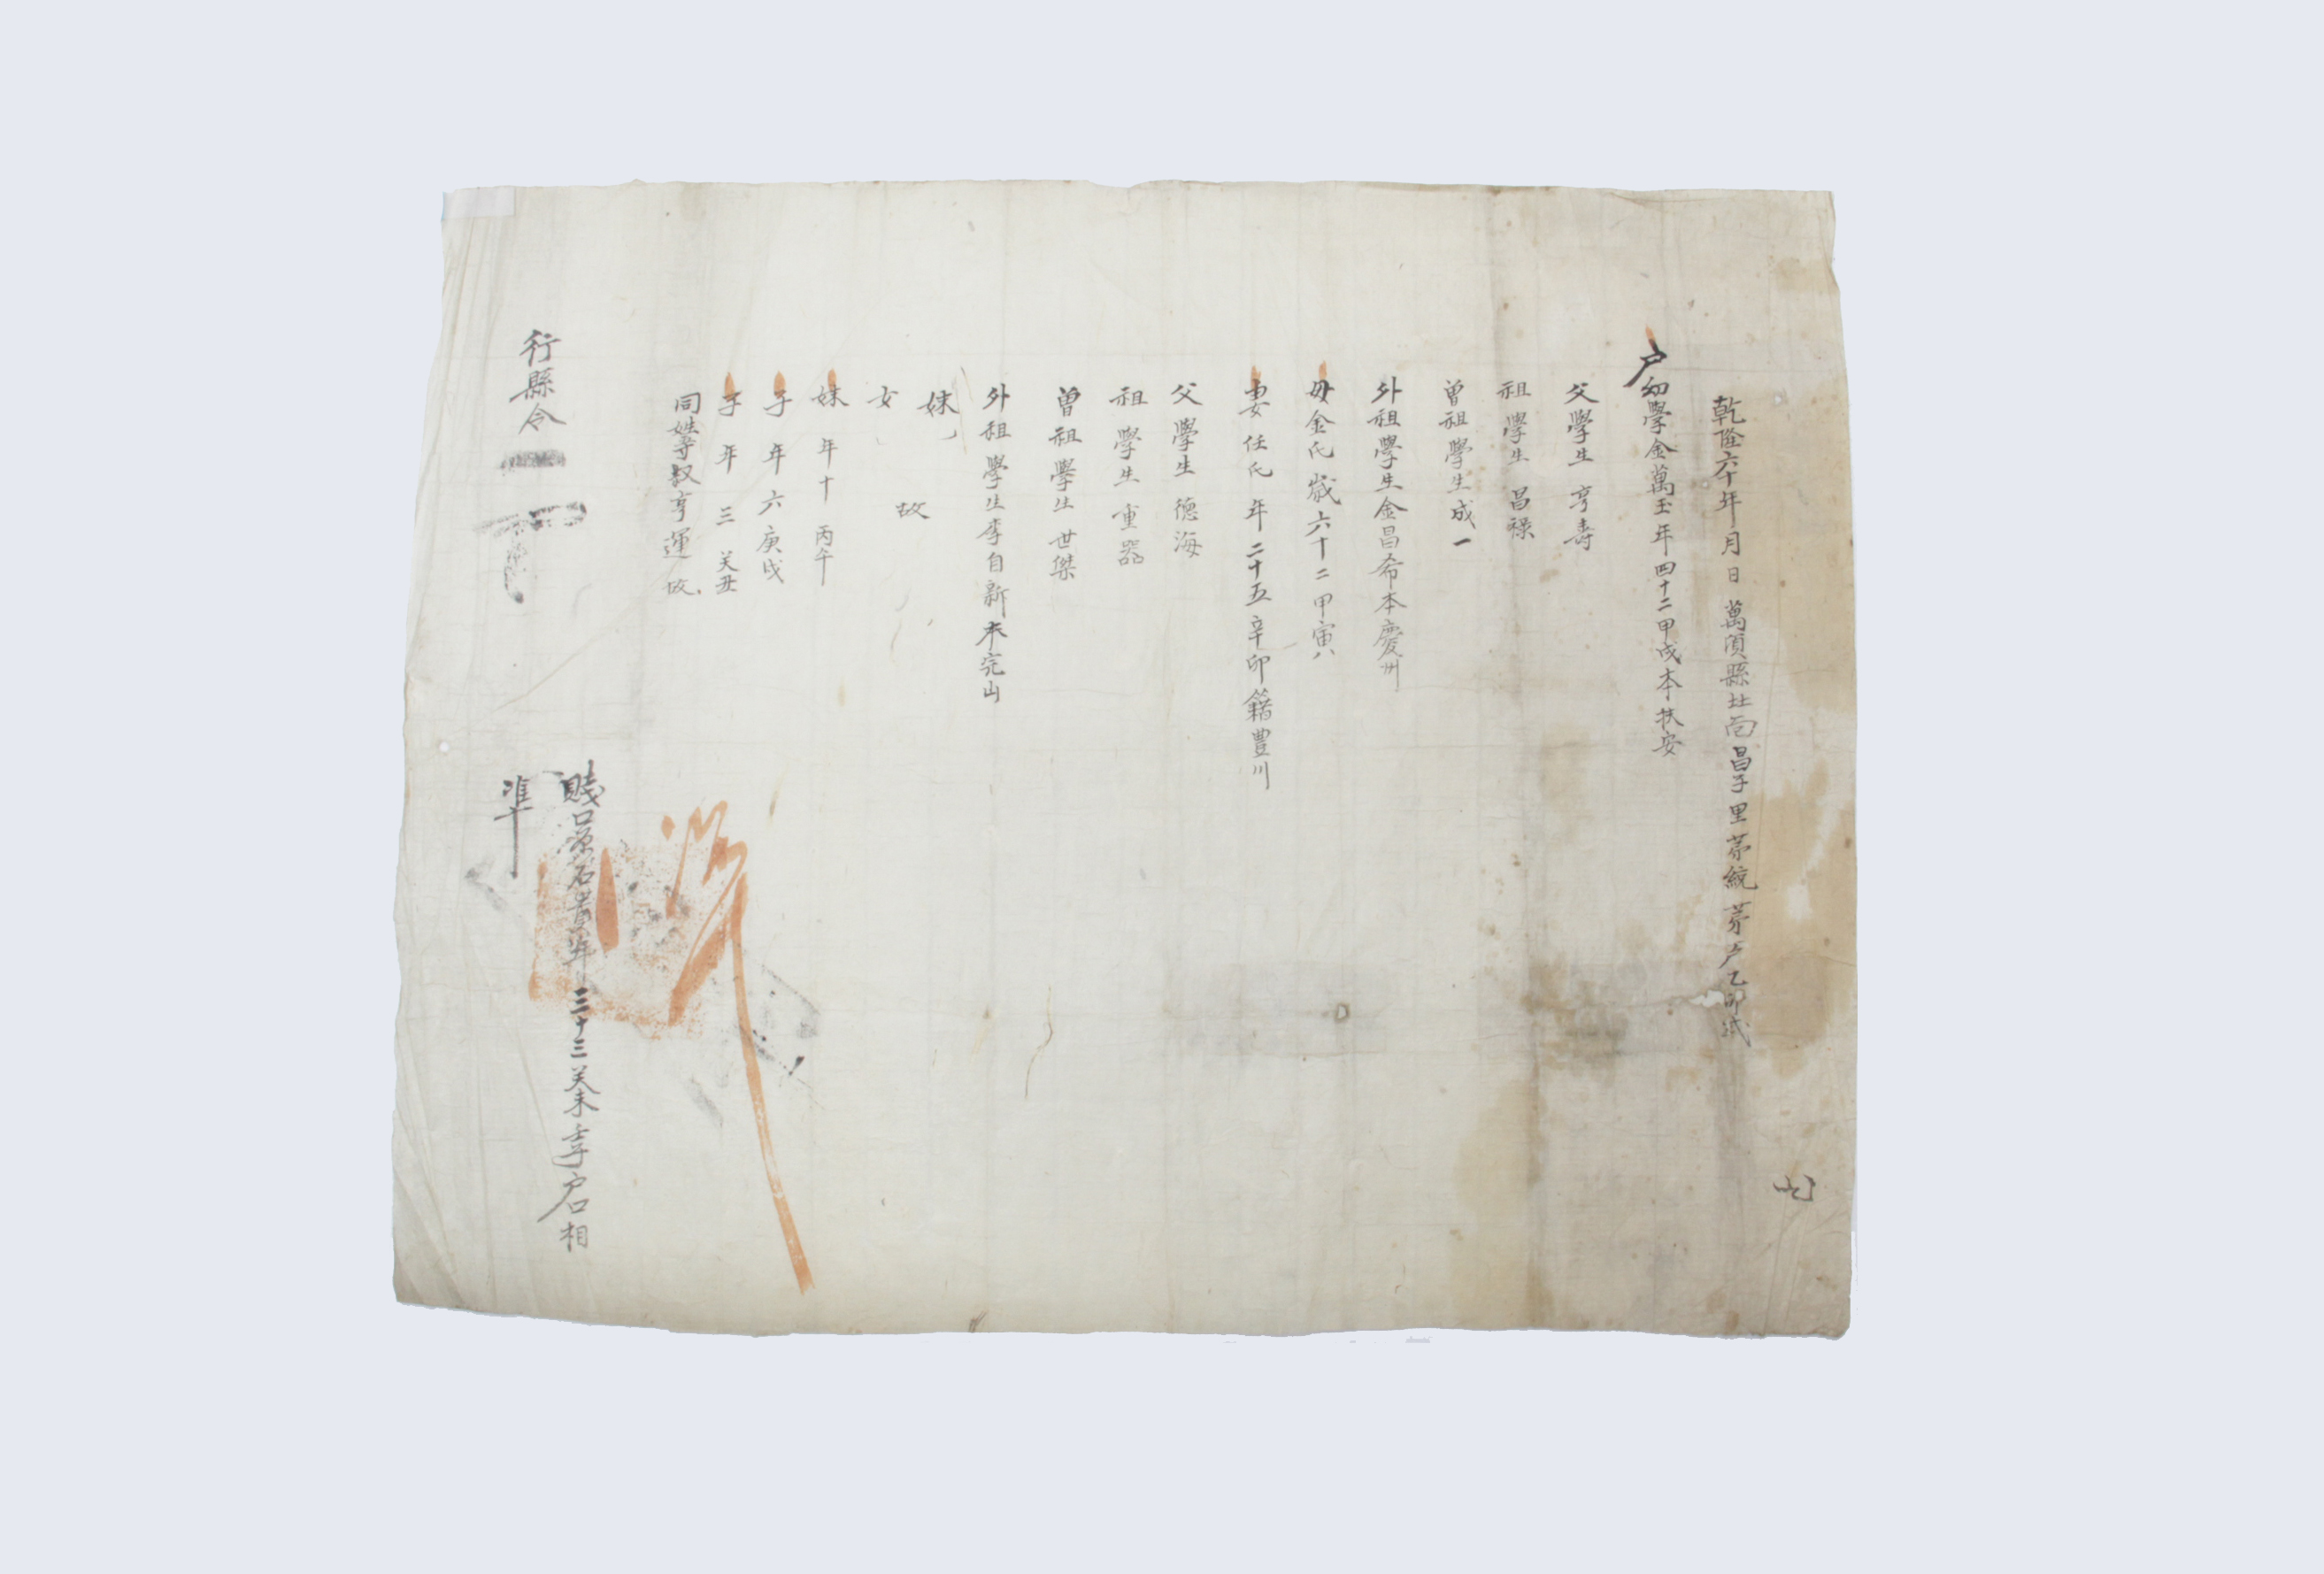 乾隆六十年 月 日 萬頃縣北面昌子里 第 統 第 戶乙卯式
戶幼學金萬玉年四十二甲戌本扶安
父學生 亨壽
祖學生 昌祿
曾祖學生成一
外祖學生金昌希本慶州
母金氏歲六十二甲寅
妻任氏 年二十五辛卯籍豊川
父學生 德海
祖學生 重器
曾祖學生 世傑
外祖學生李自新本完山
妹
故
女
妹 年十 丙午
子 年六 庚戌
子 年三 癸丑
同姓等叔亨運故
賤口 年三十三癸未 戶口相
準
行縣令